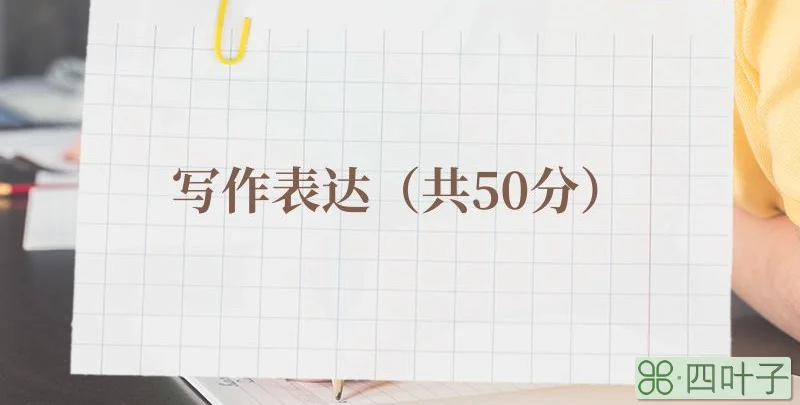 写作表达（共50分）
四叶子